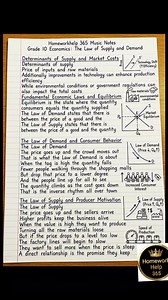 Homeworkhelp 365 Music Notes
Grade 10 Economics: The Law of Supply and Demand
Determinants of Supply and Market Costs
Determinants of supply
Price of inputs and raw materials
Additionally improvements in technology can enhance production
efficiency
While environmental conditions or government regulations can
also impact the total costs
Fundamental Economic Laws and Equilibrium
Equilibrium is the state where the quantity
consumers equals the quantity supplied
The Law of Demand states that there is
between the price of a good and the
The Law of Supply states that there
between the price of a good and the
The Law of Demand and Consumer Behavior
The Law of Demand
The price goes up and the crowd moves out
That is what the Law of Demand is about
When the tag is high the quantity falls
Fewer people walking through the shopping malls
But drop that price to a lower degree
And the people line up for all to see
The quantity climbs as the cost goes down
That is the inverse rhythm all over town
The Law of Supply and Producer Motivation
The Law of Supply
The price goes up and the sellers arrive
Higher profits keep the business alive
When the value is high they want to produce
Turning all the raw materials loose
But if the price drops to a level too low
The factory lines will begin to slow
They want to sell more when the price is steep
A direct relationship is the promise they keep
Homework
Help
365